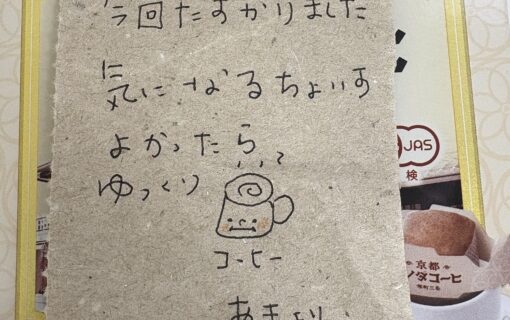 今回たすかりました
気になるちょいす
よかったら
ゆっくり
コーヒー
JAS
検
京都
ノダコーヒ